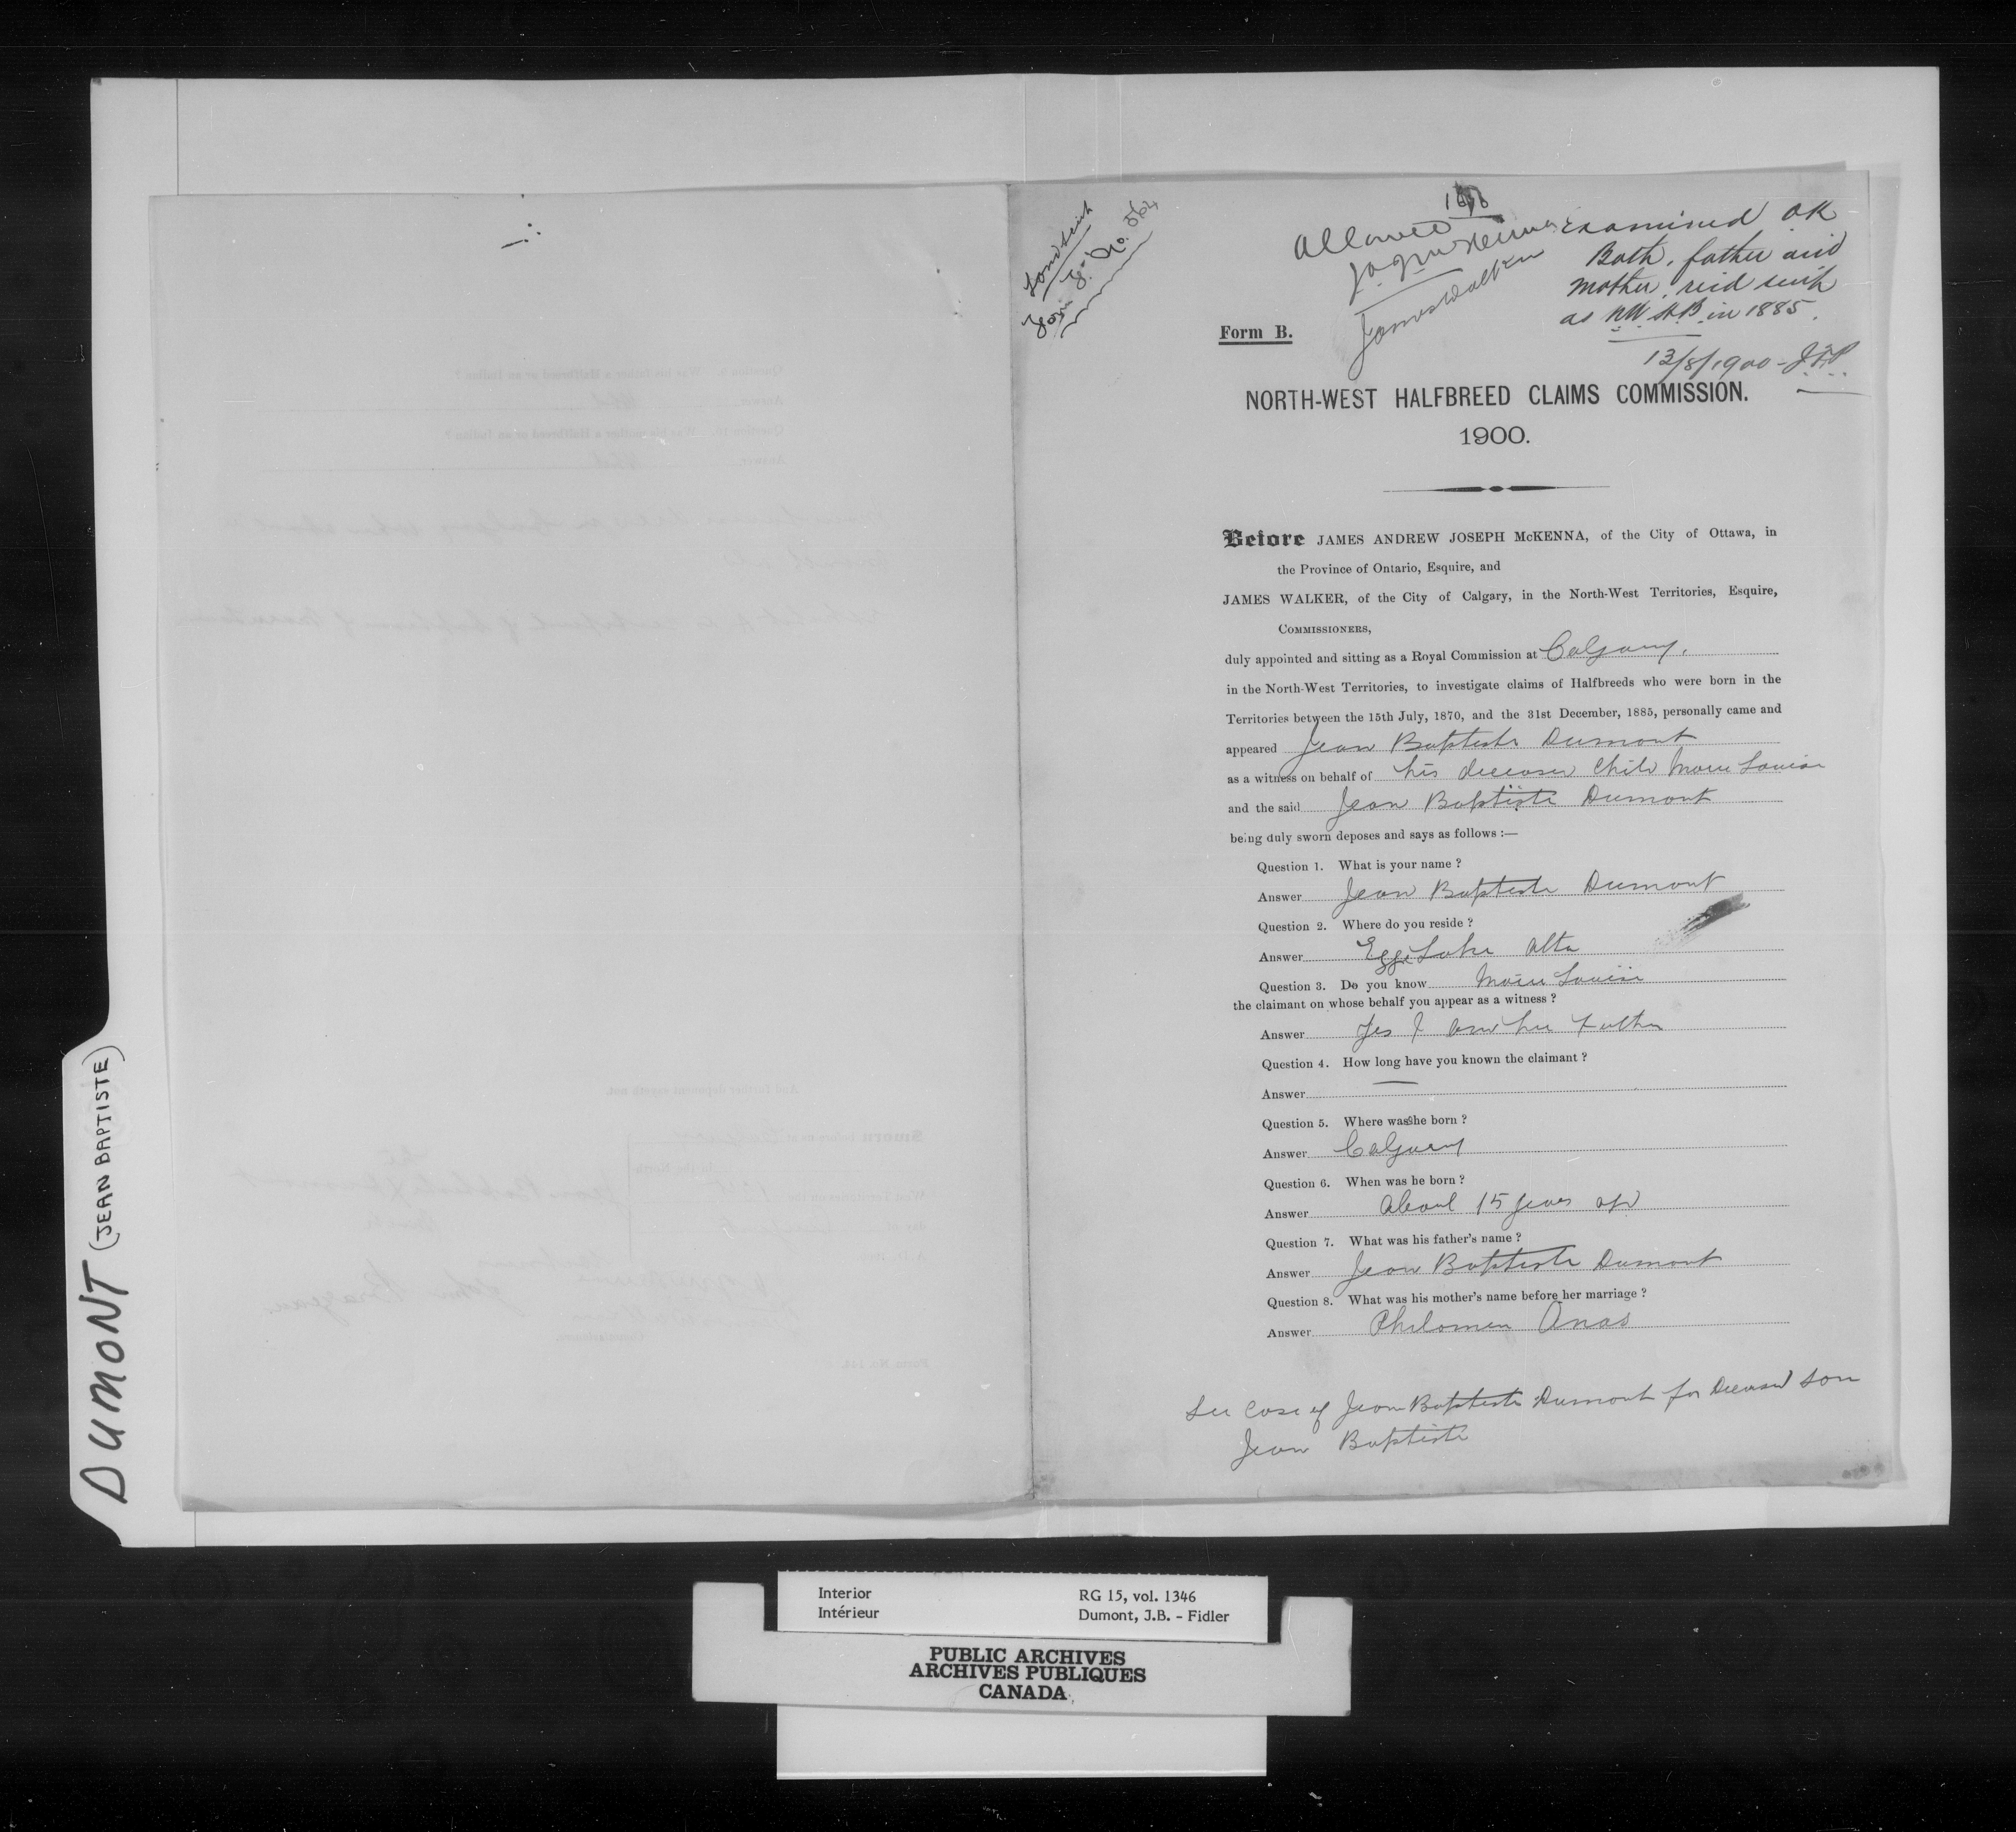 DUMONT (JEAN BAPTISTE)
Land Scrip
Form No.
Allowed
James Walker
Examined OK
Both, father and
mother, recd scrip
as NW HB in 1885.
13/8/1900 -
Form B.
NORTH-WEST HALFBREED CLAIMS COMMISSION.
1900.
Before JAMES ANDREW JOSEPH McKENNA, of the City of Ottawa, in
the Province of Ontario, Esquire, and
JAMES WALKER, of the City of Calgary, in the North-West Territories, Esquire,
COMMISSIONERS,
duly appointed and sitting as a Royal Commission at Calgary.
in the North-West Territories, to investigate claims of Halfbreeds who were born in the
Territories between the 15th July, 1870, and the 31st December, 1885, personally came and
appeared Jean Baptiste Dumont
as a witness on behalf of his deceased child Marie Louise
and the said Jean Baptiste Dumont
being duly sworn deposes and says as follows :—
Question 1. What is your name ?
Answer Jean Baptiste Dumont
Question 2. Where do you reside ?
Answer Egg Lake Alta
Question 3. Do you know Marie Louise
the claimant on whose behalf you appear as a witness ?
Answer Yes I am her Father
Question 4. How long have you known the claimant ?
Answer —
Question 5. Where was she born ?
Answer Calgary
Question 6. When was he born ?
Answer About 15 years ago
Question 7. What was his father's name ?
Answer Jean Baptiste Dumont
Question 8. What was his mother's name before her marriage ?
Answer Philomen Anas
See case of Jean Baptiste Dumont for Deceased son
Jean Baptiste
Interior RG 15, vol. 1346
Intérieur Dumont, J.B. - Fidler
PUBLIC ARCHIVES
ARCHIVES PUBLIQUES
CANADA